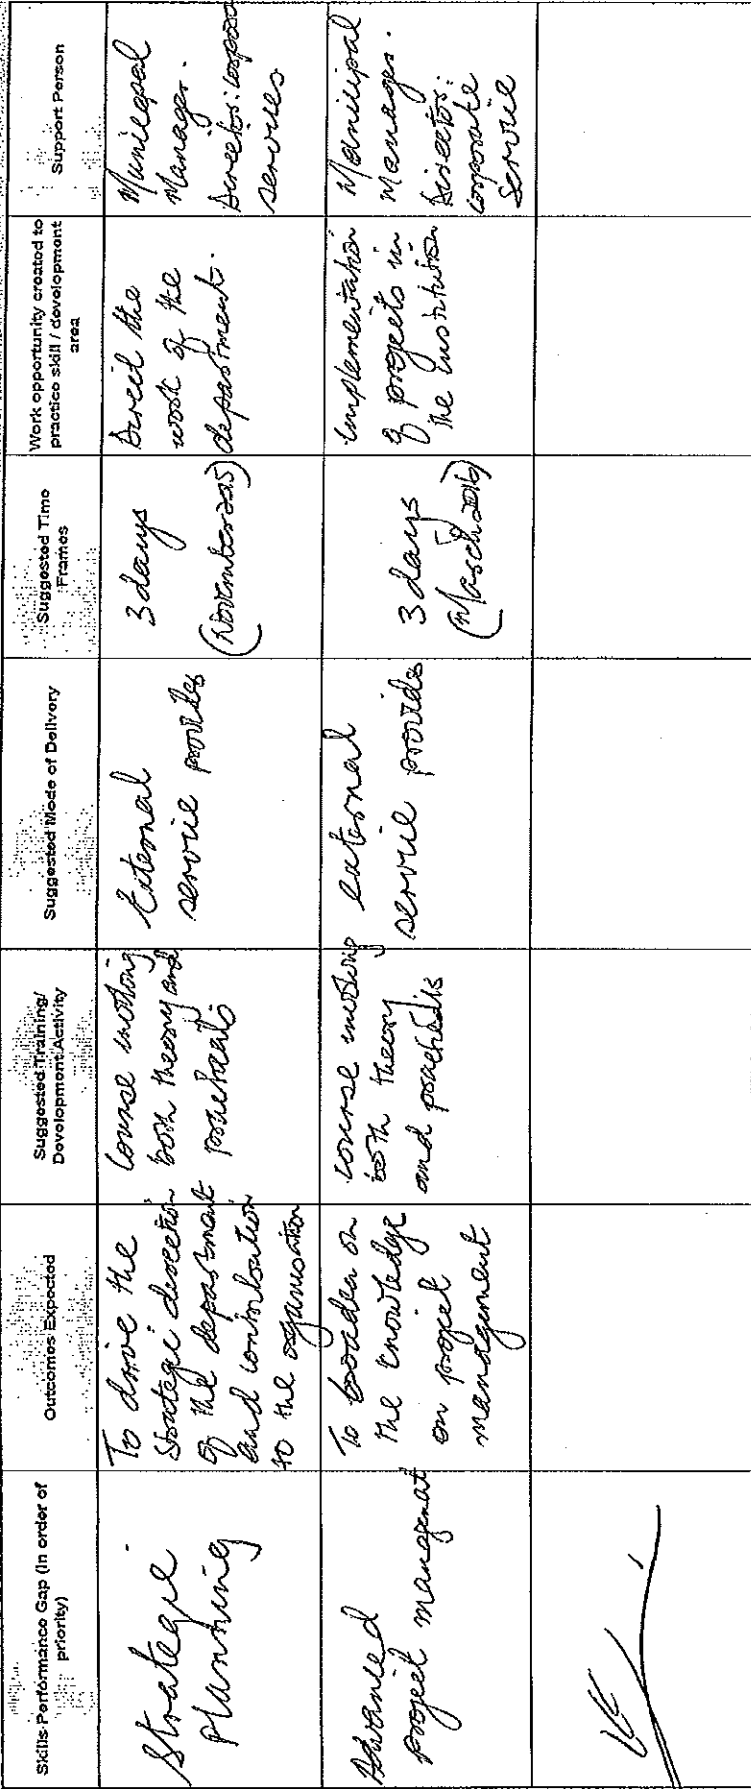 Skills Performance Gap (In order of
priority)
Outcomes Expected
Suggested Training/
Development Activity
Suggested Mode of Delivery
Suggested Time
Frames
Work opportunity created to
practice skill / development
area
Support Person
Strategic
Planning
To drive the
strategic direction
of the department
and contribution
to the organisation
Course involving
both theory and
practicals
External
service provider
3 days
(November 2015)
Direct the
work of the
department.
Municipal
Manager.
Director: corporate
services
Advanced
project management
To broaden on
the knowledge
on project
management
course involving
both theory
and practicals
external
service provider
3 days
(March 2016)
Implementation
of projects in
the institution
Municipal
Manager.
Director:
corporate
Service